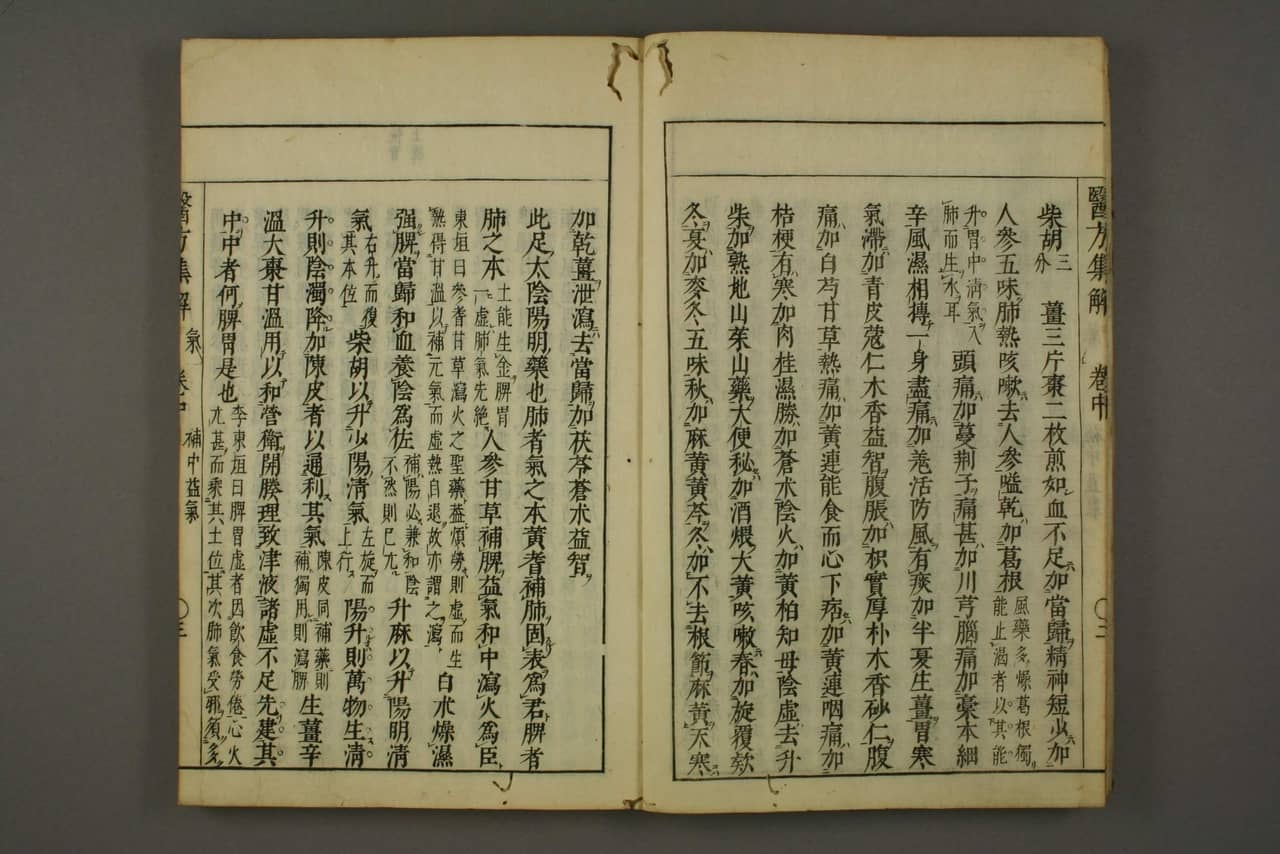 醫方集解 卷中 〇二
柴胡三分 薑三片棗二枚煎如血不足加當歸精神短少加
人參五味肺熱咳嗽去人參嗌乾加葛根風藥多燥葛根獨能止渴者以其能
升胃中清氣入肺而生水耳頭痛加蔓荆子痛甚加川芎腦痛加藁本細
辛風濕相摶一身盡痛加羗活防風有痰加半夏生薑胃寒
氣滯加青皮蔻仁木香益智腹脹加枳實厚朴木香砂仁腹
痛加白芍甘草熱痛加黃連能食而心下痞加黃連咽痛加
桔梗有寒加肉桂濕勝加蒼朮陰火加黃柏知母陰虛去升
柴加熟地山茱山藥大便秘加酒煨大黃咳嗽春加旋覆欸
冬夏加麥冬五味秋加麻黃黃芩冬加不去根節麻黃天寒
加乾薑泄瀉去當歸加茯苓蒼朮益智
此足太陰陽明藥也肺者氣之本黃耆補肺固表爲君脾者
肺之本土能生金脾胃一虛肺氣先絶人參甘草補脾益氣和中瀉火爲臣
東垣曰參耆甘草瀉火之聖藥葢煩勞則虛而生熱得甘溫以補元氣而虛熱自退故亦謂之瀉白朮燥濕
强脾當歸和血養陰爲佐補陽必兼和陰不然則已亢升麻以升陽明清
氣右升而復其本位柴胡以升少陽清氣左旋而上行陽升則萬物生清
升則陰濁降加陳皮者以通利其氣陳皮同補藥則補獨用則瀉脾生薑辛
溫大棗甘溫用以和營衛開腠理致津液諸虛不足先建其
中中者何脾胃是也李東垣曰脾胃虛者因飲食勞倦心火亢甚而乘其土位其次肺氣受邪須多
醫方集解 氣 卷中 補中益氣 〇三